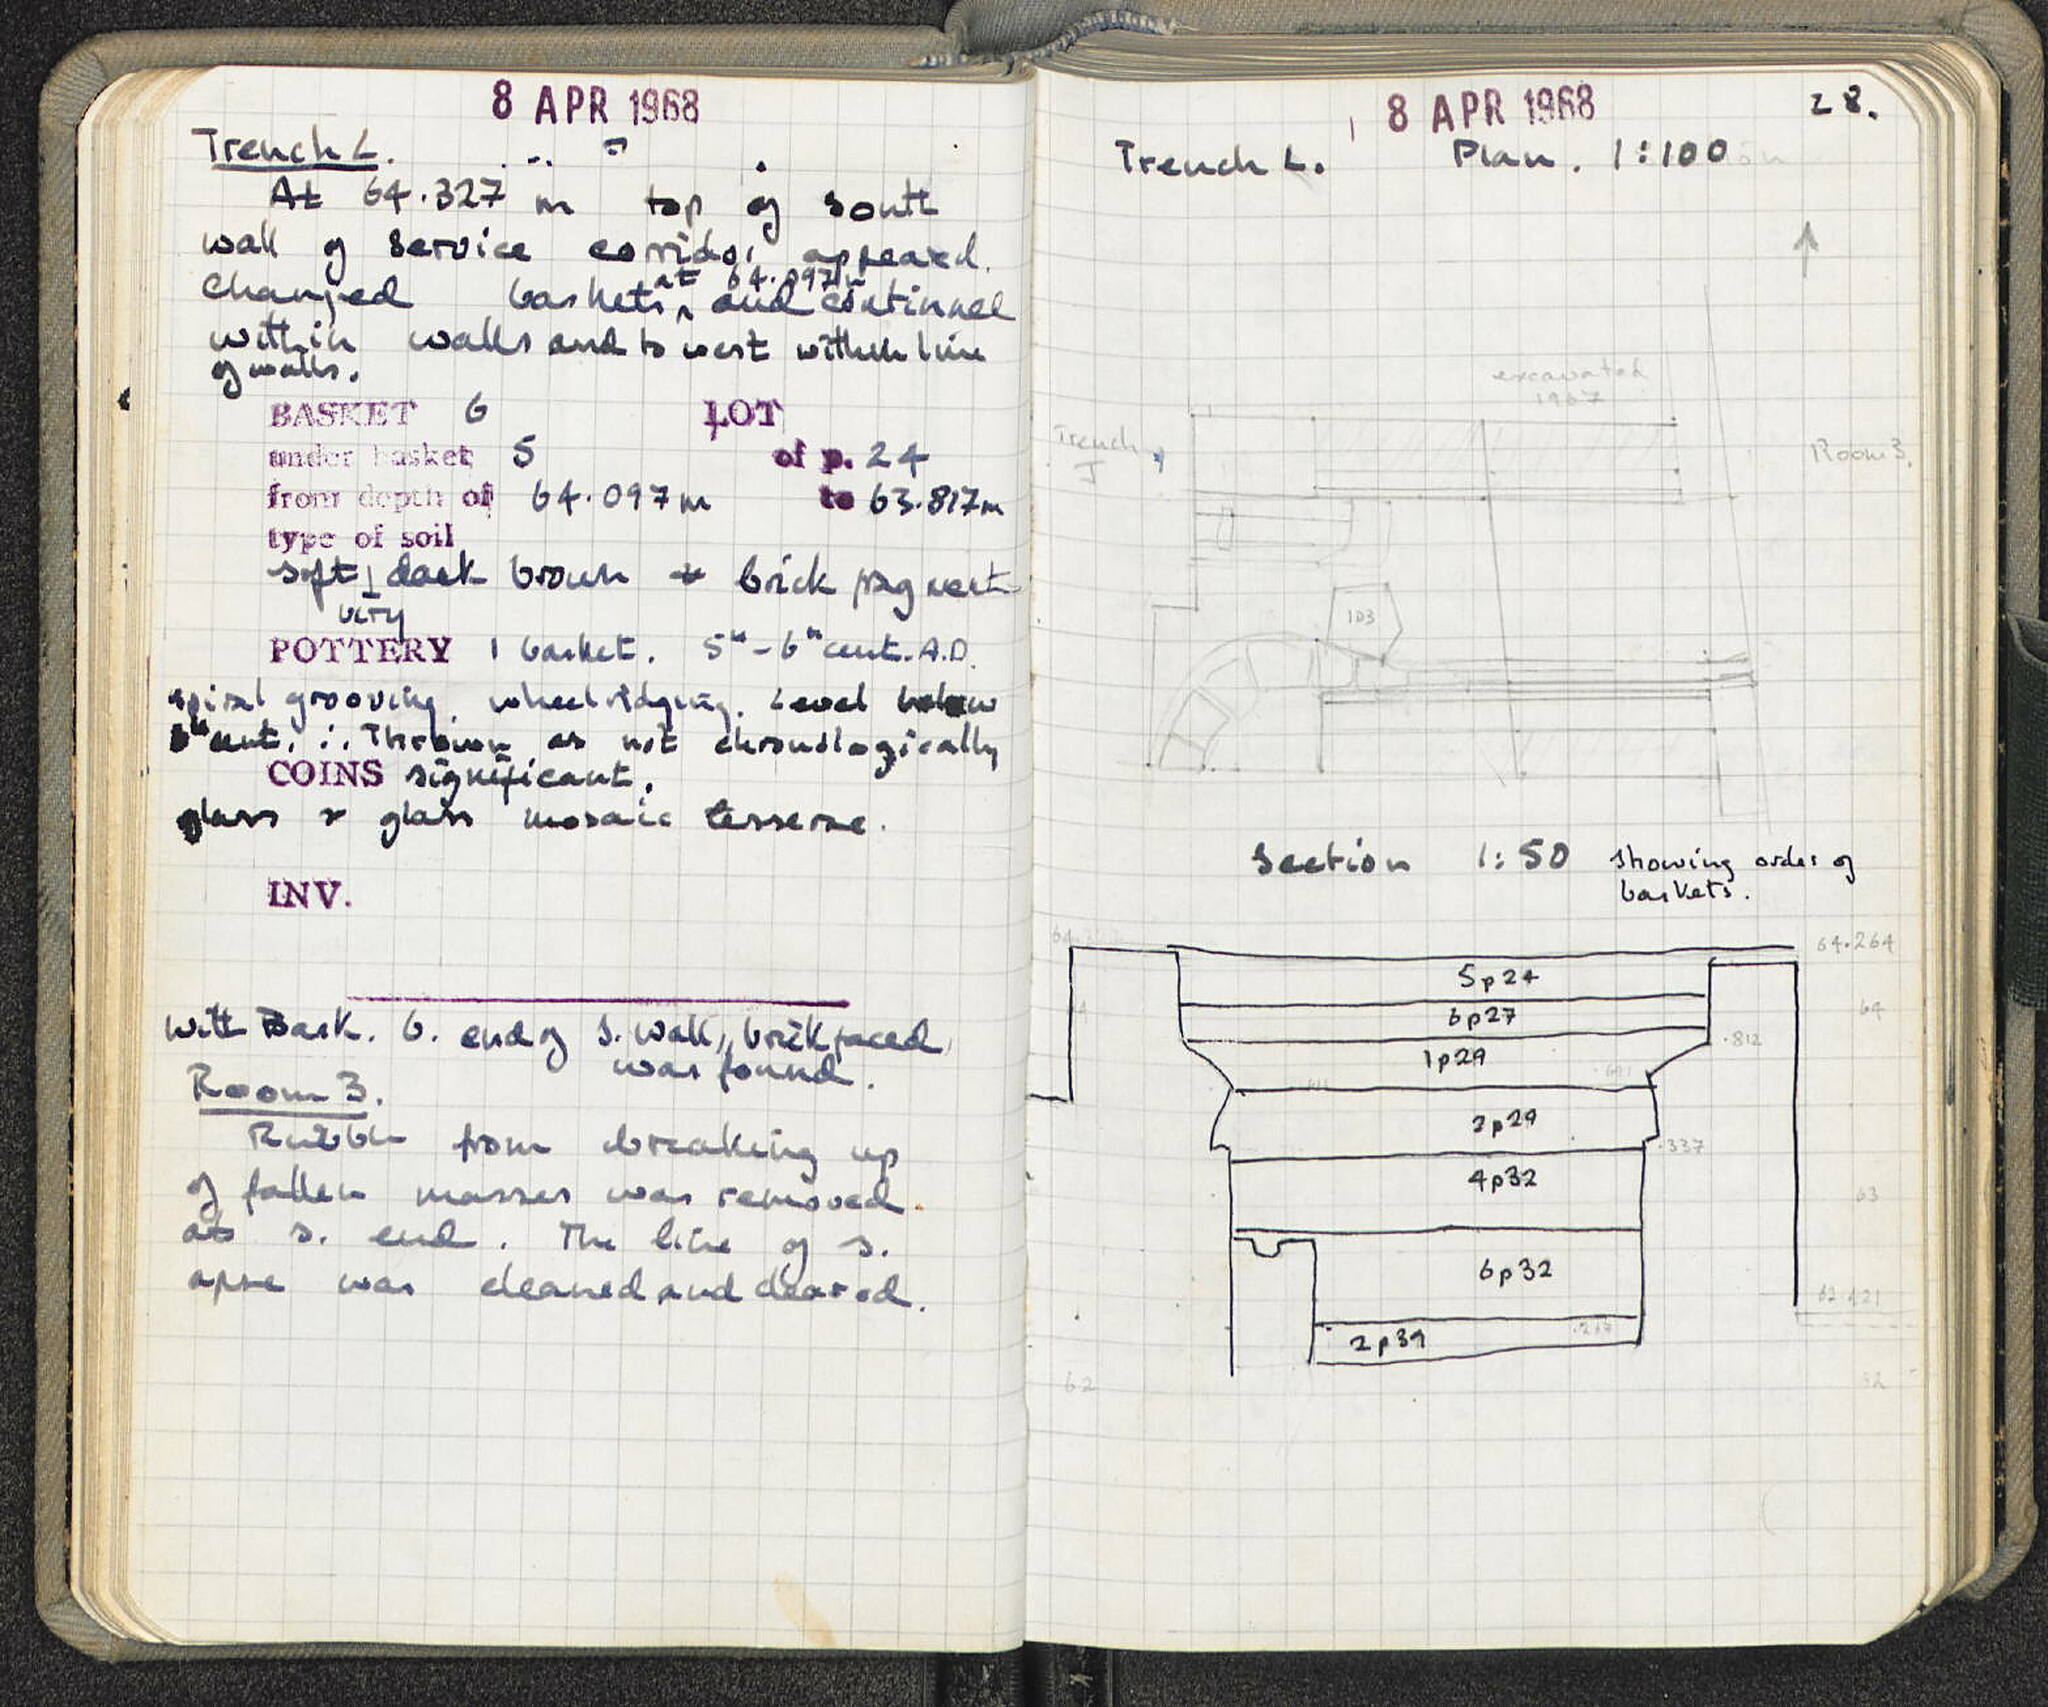 8 APR 1968
Trench L.
At 64.327 m top of south
wall of service corridor appeared.
Changed baskets at 64.097m and continued
within walls and to west within line
of walls.
BASKET 6 LOT
under basket 5 of p. 24
from depth of 64.097m to 63.817m
type of soil
soft, dark brown + brick fragment
very
POTTERY 1 basket. 5th-6th cent. A.D.
spiral grooving, wheelridging. Level below
5th cent. ∴ Thrown as not chronologically
COINS significant.
glass + glass mosaic tesserae.
INV.
With Bask. 6. end of S. wall, brick faced,
was found.
Room 3.
Rubble from breaking up
of fallen masses was removed
at s. end. The line of s.
apse was cleaned and cleared.
8 APR 1968 28.
Trench L. Plan. 1:100
excavated
1967
Trench
J
Room 3.
103
Section 1:50 showing order of
baskets.
64.264
5p24
64
6p27
.812
1p29
2p29
.337
4p32
63
6p32
62.421
2p39
62